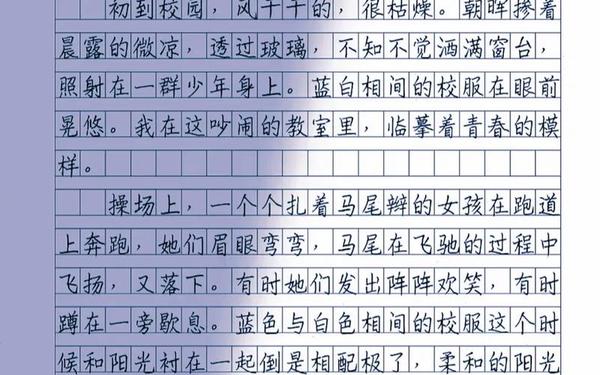 初到校园，风干干的，很枯燥。朝晖掺着
晨露的微凉，透过玻璃，不知不觉洒满窗台，
照射在一群少年身上。蓝白相间的校服在眼前
晃悠。我在这吵闹的教室里，临摹着青春的模
样。
操场上，一个个扎着马尾辫的女孩在跑道
上奔跑，她们眉眼弯弯，马尾在飞驰的过程中
飞扬，又落下。有时她们发出阵阵欢笑，有时
蹲在一旁歇息。蓝色与白色相间的校服这个时
候和阳光衬在一起倒是相配极了，柔和的阳光